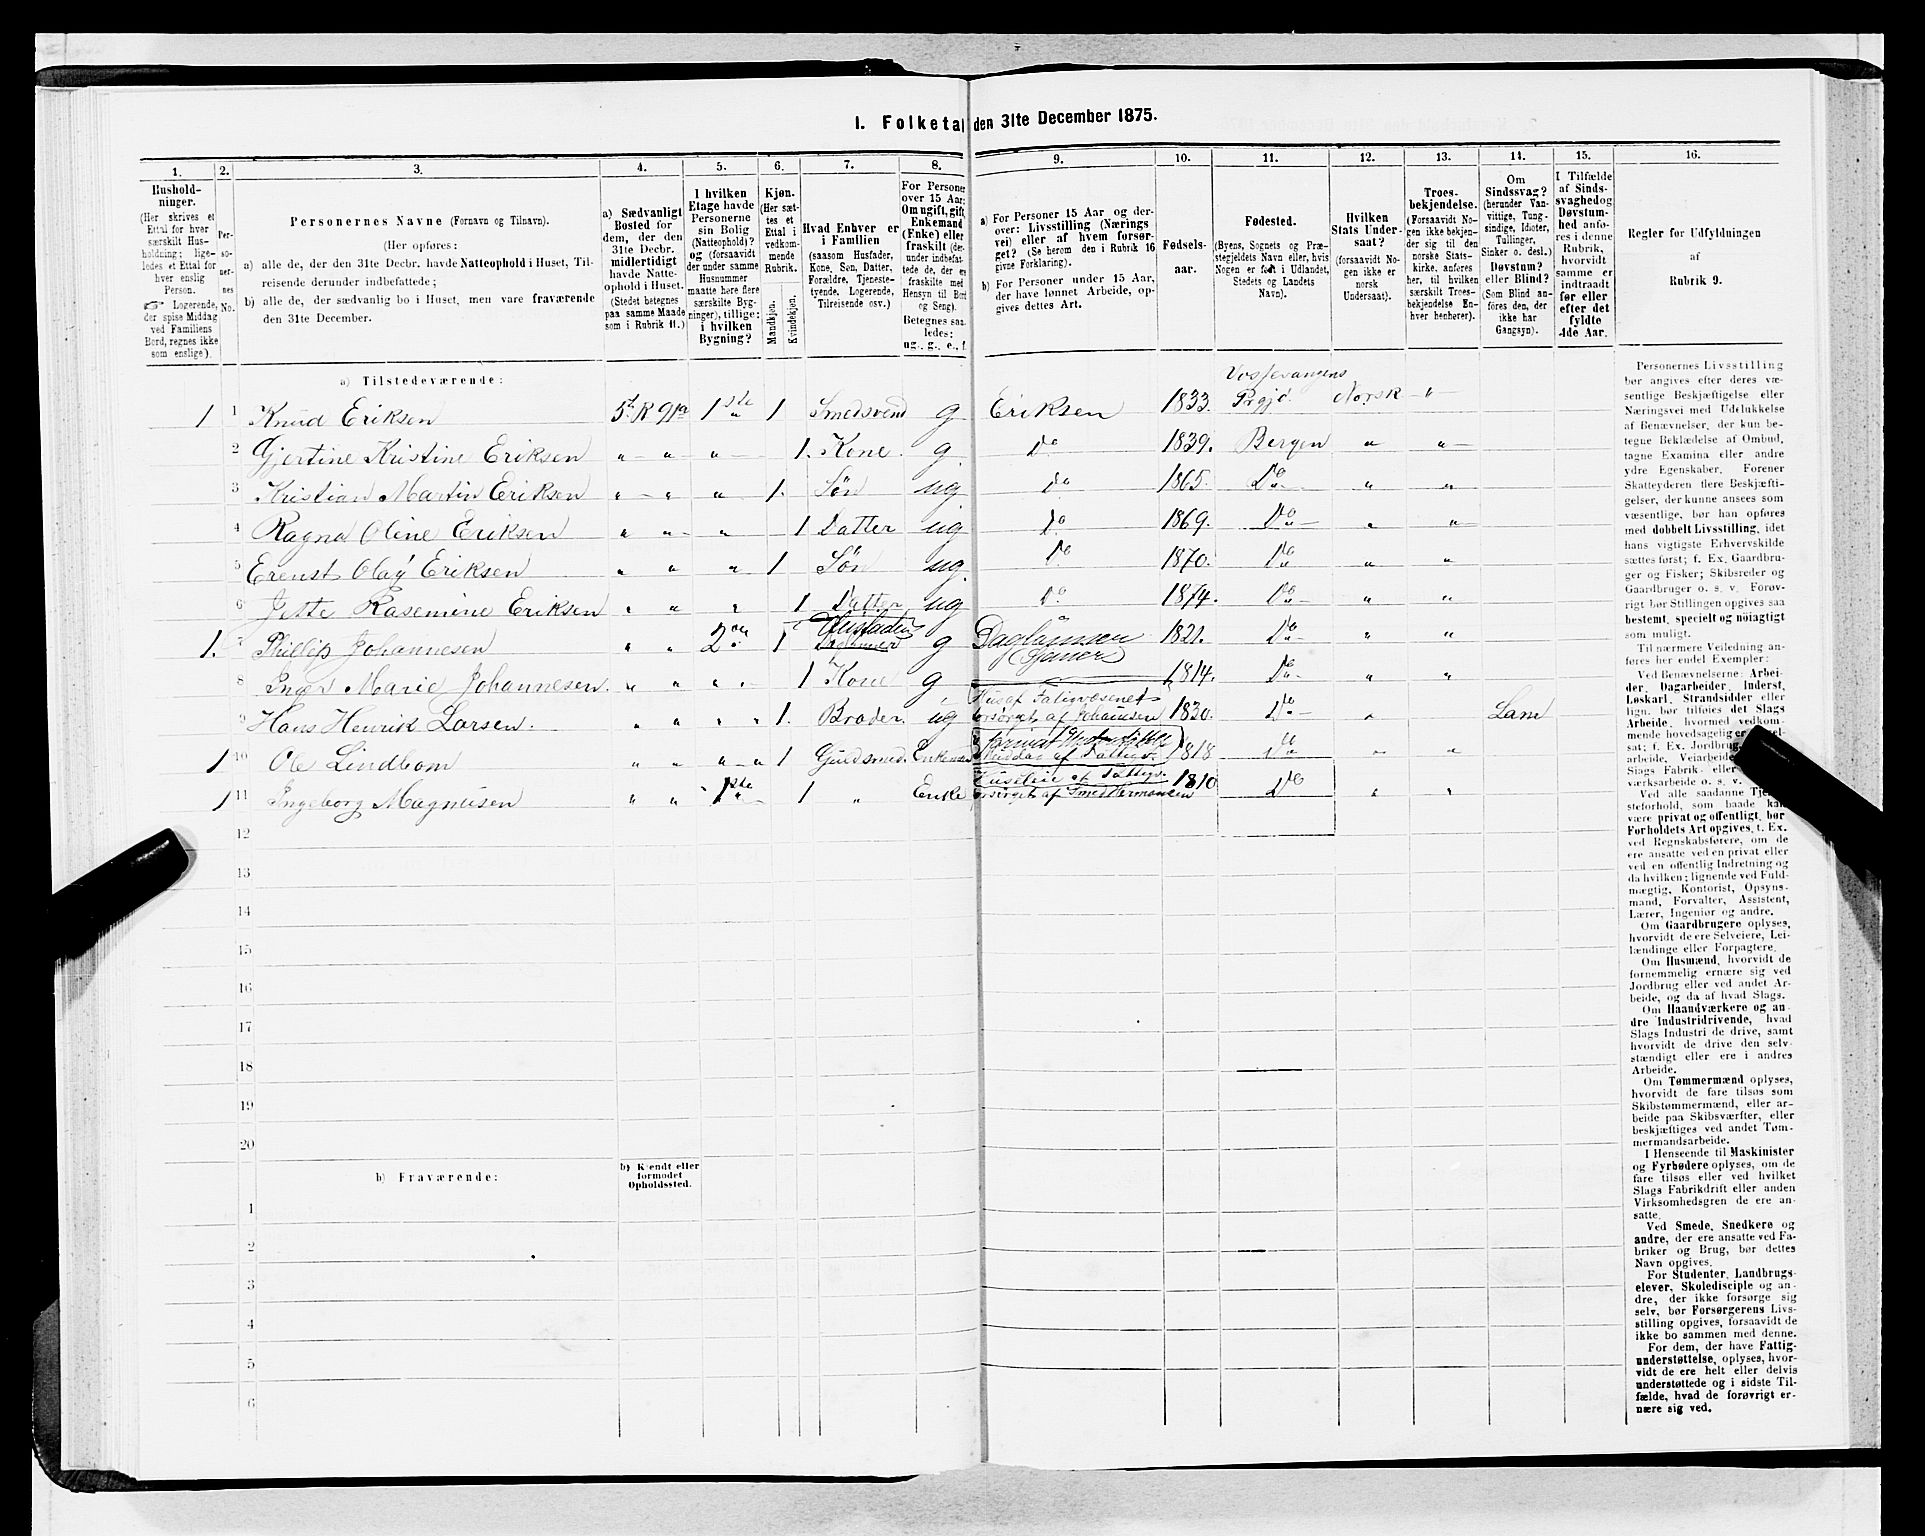 1. Folketal den 31te December 1875.
1. 2. 3. 4. 5. 6. 7. 8. 9. 10. 11. 12. 13. 14. 15. 16.
Hushold-
ninger.
(Her skrives et
Ettal for hver
særskilt Hus-
holdning; lige-
ledes et Ettal for
hver enslig
Person.
Logerende,
der spise Middag
ved Familiens
Bord, regnes ikke
som enslige).
Per-
so-
ner-
nes
No.
Personernes Navne (Fornavn og Tilnavn).
(Her opføres:
a) alle de, der den 31te Decbr. havde Natteophold i Huset, Til-
reisende derunder indbefattede;
b) alle de, der sædvanlig bo i Huset, men vare fraværende
den 31te December.
a) Sædvanligt
Bosted for
dem, der den
31te Decbr.
midlertidigt
havde Natte-
ophold i Huset.
(Stedet betegnes
paa samme Maade
som i Rubrik 11.)
I hvilken
Etage havde
Personerne
sin Bolig
(Natteophold)?
og (forsaavidt
der under samme
Husnummer
maatte høre flere
særskilte Byg-
ninger), tillige:
i hvilken
Bygning?
Kjøn.
(Her sæt-
tes et
Ettal i
vedkom-
mende
Rubrik.
Mandkjøn.
Kvindekjøn.
Hvad Enhver er
i Familien
(saasom Husfader,
Kone, Søn, Datter,
Forældre, Tjeneste-
tyende, Logerende,
Tilreisende osv.)
For Personer
over 15 Aar:
Om ugift, gift,
Enkemand
(Enke) eller
fraskilt (der-
under indbefat-
tede de, der ere
fraskilte med
Hensyn til Bord
og Seng).
Betegnes saa-
ledes:
ug., g., e., f.
a) For Personer 15 Aar og der-
over: Livsstilling (Nærings
vei) eller af hvem forsør-
get? (Se herom den i Rubrik 16
givne Forklaring).
b) For Personer under 15 Aar,
der have lønnet Arbeide, op-
gives dettes Art.
Fødsels-
aar.
Fødested.
(Byens, Sognets og Præ-
stegjeldets Navn eller, hvis
Nogen er født i Udlandet,
Stedets og Landets
Navn).
Hvilken
Stats Under-
saat?
(forsaavidt No-
gen ikke er
norsk
Undersaat).
Troes-
bekjendelse.
(Forsaavidt No-
gen ikke bekjen-
der sig til den
norske Stats-
kirke, anføres
her, til hvilken
særskilt Troes-
bekjendelse En-
hver henhører).
Om
Sindssvag?
(herunder Van-
vittige, Tung-
sindige, Idioter,
Tullinger,
Sinker o. desl.)
Døvstum?
eller Blind?
(Som Blind an-
føres den, der
ikke har
Gangsyn).
I Tilfælde
af Sinds-
svaghed og
Døvstum-
hed anfø-
res i denne
Rubrik,
hvorvidt
samme er
indtraadt
før eller
efter det
fyldte
4de Aar.
Regler for Udfyldningen
af
Rubrik 9.
a) Tilstedeværende:
1 1 Knud Eriksen 5t. R 91a 1ste 1 Smedsvend g Eriksen 1833. Vossevangens Prgjd. Norsk "
2 Gjertine Kristine Eriksen " " " 1. Kone. g. Do 1839. Bergen " "
3 Kristian Martin Eriksen " " " 1. Søn ug. Do 1865. Do " "
4 Ragna Oline Eriksen " " " 1 Datter ug Do 1869. Do " "
5 Erenst Olaf Eriksen " " " 1 Søn ug. Do 1870. Do " "
6 Jette Rasemine Eriksen " " " 1 Datter ug Do 1874. Do " "
1. 7 Phillip Johannesen " " 2den 1 Husfader g Daglønner 1821. Do " "
8 Inger Marie Johannesen. " " " 1 Kone g 1814. Do " "
9 Hans Henrik Larsen. " " " 1. Broder. ug Hus af Fativæsenet forsørget af Johansen 1830. Do " Lam
1 10 Ole Lindbom " " " 1 Guldsmed. Enkemand Middag af Fattigv. 1818 Do " "
1 11 Ingeborg Magnusen " " 1ste 1 " Enke Husleie et Fattigv. forsørget af Smed Hermansen 1810 Do " "
12
13
14
15
16
17
18
19
20
b) Fraværende:
b) Kjendt eller
formodet
Opholdssted.
1
2
3
4
5
6
Personernes Livsstilling
bør angives efter deres væ-
sentlige Beskjæftigelse eller
Næringsvei med Udelukkelse
af Benævnelser, der kun be-
tegne Beklædelse af Ombud,
tagne Examina eller andre
ydre Egenskaber. Forener
Skatteyderen flere Beskjæfti-
gelser, der kunne ansees som
væsentlige, bør han opføres
med dobbelt Livsstilling, idet
hans vigtigste Erhvervskilde
sættes først; f. Ex. Gaardbru-
ger og Fisker; Skibsreder og
Gaardbruger o. s. v. Forøv-
rigt bør Stillingen opgives saa
bestemt, specielt og nøiagtigt
som muligt.
Til nærmere Veiledning an-
føres her endel Exempler:
Ved Benævnelserne: Arbei-
der, Dagarbeider, Inderst,
Løskarl, Strandsidder eller
lign. bør tilføies det Slags
Arbeide, hvormed vedkom-
mende hovedsagelig er
sat; f. Ex. Jordbrug,
arbeide, Veiarbeide,
Slags Fabrik- eller
værksarbeide o. s. v.
Ved alle saadanne Tje-
steforhold, som baade kan
være privat og offentligt, bør
Forholdets Art opgives, t. Ex.
ved Regnskabsførere, om de
ere ansatte ved en privat eller
ved en offentlig Indretning og
da hvilken; lignende ved Fuld-
mægtig, Kontorist, Opsyns-
mand, Forvalter, Assistent,
Lærer, Ingeniør og andre.
Om Gaardbrugere oplyses,
hvorvidt de ere Selveiere, Lei-
lændinge eller Forpagtere.
Om Husmænd, hvorvidt de
fornemmelig ernære sig ved
Jordbrug eller ved andet Ar-
beide, og da af hvad Slags.
Om Haandværkere og an-
dre Industridrivende, hvad
Slags Industri de drive, samt
hvorvidt de drive den selv-
stændigt eller ere i andres
Arbeide.
Om Tømmermænd oplyses,
hvorvidt de fare tilsøs som
Skibstømmermænd, eller ar-
beide paa Skibsværfter, eller
beskjæftiges ved andet Tøm-
mermandsarbeide.
I Henseende til Maskinister
og Fyrbødere oplyses, om de
fare tilsøs eller ved hvilket
Slags Fabrikdrift eller anden
Virksomhedsgren de ere an-
satte.
Ved Smede, Snedkere og
andre, der ere ansatte ved Fa-
briker og Brug, bør dettes
Navn opgives.
For Studenter, Landbrugs-
elever, Skoledisciple og an-
dre, der ikke forsørge sig
selv, bør Forsørgerens Livs-
stilling opgives, forsaavidt de
ikke bo sammen med denne.
For dem, der have Fattig-
understøttelse, oplyses, hvor-
vidt de ere helt eller delvis
understøttede og i sidste Til-
fælde, hvad de forøvrigt er-
nære sig ved.